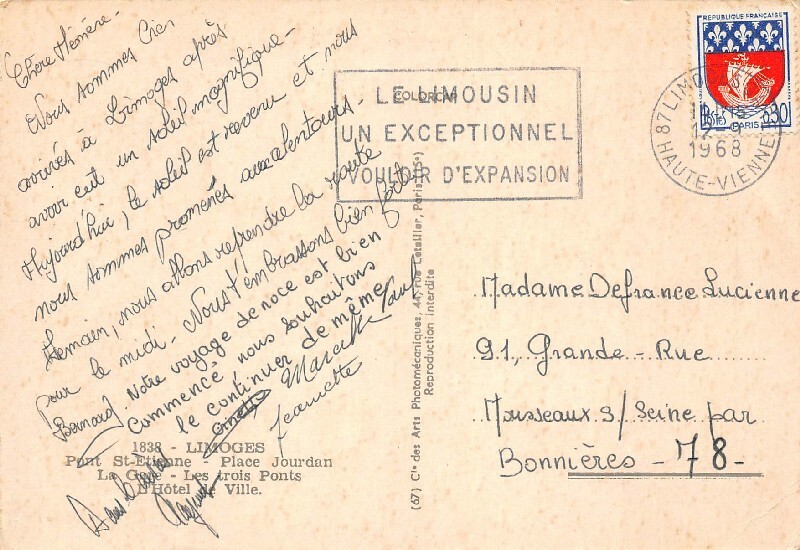 Chère Mémère -
Nous sommes bien
arrivés à Limoges après
avoir eut un soleil magnifique -
Aujourd'hui, le soleil est revenu et nous
nous sommes promenés aux alentours -
Demain, nous allons reprendre la route
pour le midi - Nous t'embrassons bien fort
Bernard. Notre voyage de noce est bien
commencé, nous souhaitons
le continuer de même
Ginette Marcelle Paul
Jeannette
1838 - LIMOGES
Pont St-Etienne - Place Jourdan
La Gare - Les trois Ponts
L'Hôtel de Ville.
COLORCM
LE LIMOUSIN
UN EXCEPTIONNEL
VOULOIR D'EXPANSION
(67) Cie des Arts Photomécaniques, 44, rue Letellier, Paris (15e)
Reproduction interdite
REPUBLIQUE FRANÇAISE
POSTES
0,30
PARIS
87 LIMOGES
1968
HAUTE-VIENNE
Madame Defrance Lucienne
91, Grande-Rue
Mousseaux s/Seine par
Bonnières - 78 -